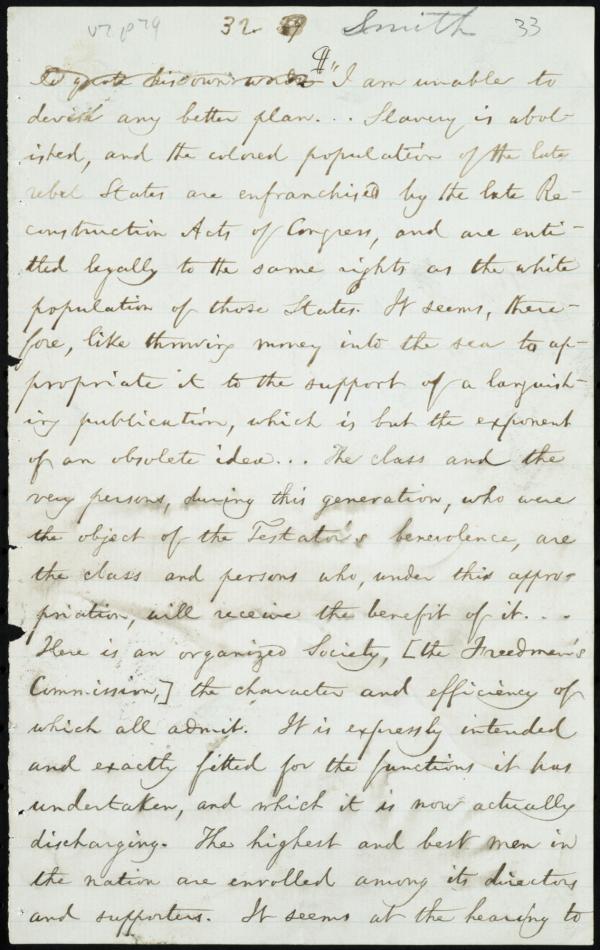 v2 p79 32 Smith 33
To quote his own words ¶ "I am unable to
devise any better plan... Slavery is abol-
ished, and the colored population of the late
rebel States are enfranchised by the late Re-
construction Acts of Congress, and are enti-
tled legally to the same rights as the white
population of those States. It seems, there-
fore, like throwing money into the sea to ap-
propriate it to the support of a languish-
ing publication, which is but the exponent
of an obsolete idea... The class and the
very persons, during this generation, who were
the object of the Testator's benevolence, are
the class and persons who, under this appro-
priation, will receive the benefit of it...
Here is an organized Society, [the Freedmen's
Commission,] the character and efficiency of
which all admit. It is expressly intended
and exactly fitted for the functions it has
undertaken, and which it is now actually
discharging. The highest and best men in
the nation are enrolled among its directors
and supporters. It seems at the hearing to